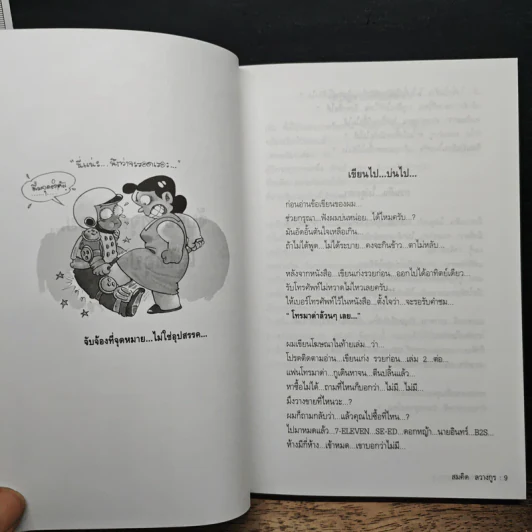 จับจ้องที่จุดหมาย...ไม่ใช่อุปสรรค...
เขียนไป...บ่นไป...
ก่อนอ่านข้อเขียนของผม...
ช่วยกรุณา...ฟังผมบ่นหน่อย...ได้ไหมครับ...?
มันอัดอั้นตันใจเหลือเกิน...
ถ้าไม่ได้พูด...ไม่ได้ระบาย...คงจะกินข้าว...ตาไม่หลับ...
หลังจากหนังสือ...เขียนเก่งรวยก่อน...ออกไปได้อาทิตย์เดียว...
รับโทรศัพท์ไม่หวาดไม่ไหวเลยครับ...
ให้เบอร์โทรศัพท์ไว้ในหนังสือ...ตั้งใจว่า...จะรอรับคำชม...
" โทรมาด่าล้วนๆ เลย..."
ผมเขียนโฆษณาในท้ายเล่ม...ว่า...
โปรดติดตามอ่าน...เขียนเก่ง รวยก่อน...เล่ม 2...ต่อ...
แฟนโทรมาด่า...กูเดินหาจน...ตีนปลิ้นแล้ว...
หาซื้อไม่ได้...ถามที่ไหนก็บอกว่า...ไม่มี...ไม่มี...
มึงวางขายที่ไหนวะ...?
ผมก็ถามกลับว่า...แล้วคุณไปซื้อที่ไหน...?
ไปมาหมดแล้ว...7-ELEVEN...SE-ED...ดอกหญ้า...นายอินทร์...B2S...
ห้างมีกี่ห้าง...เข้าหมด...เขาบอกว่าไม่มี...
สมคิด ลวางกูร : 9